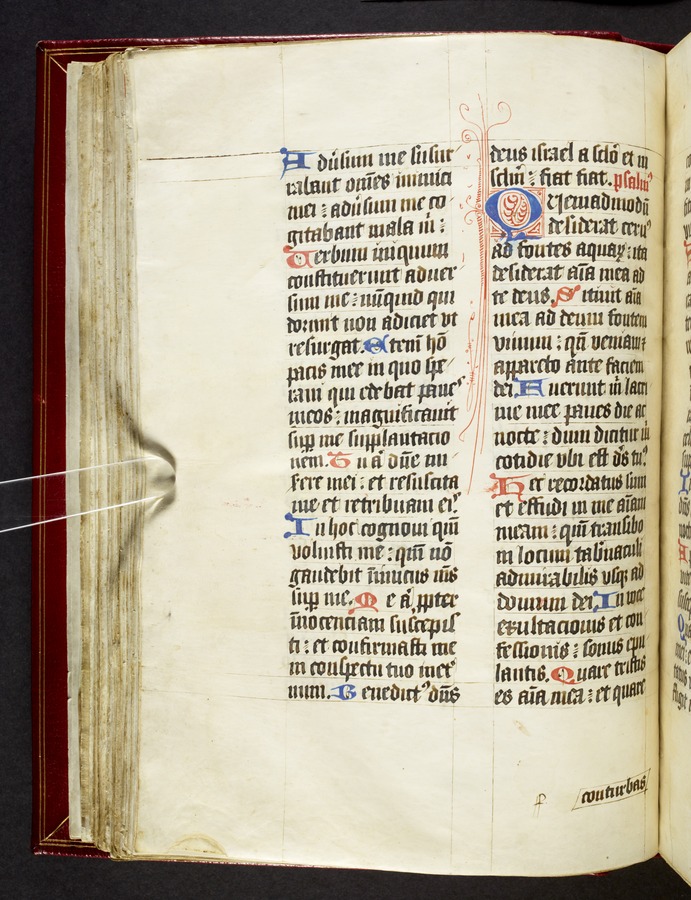 Adūsum me susur
rabant om̄es inimici
mei : adūsum me co
gitabant mala m̄ :
Verbum iniquum
constituerunt aduer
sum me : nūquid qui
dormit non adiciet vt
resurgat. Etenī hō
pacis mee in quo spe
raui qui edebat paneꝰ
meos : magnificauit
suꝑ me supplantacio
nem. Tu ā dn̄e mi
serere mei : et resuscita
me et retribuam eiꝰ
In hoc cognoui qm̄
voluisti me : qm̄ nō
gaudebit īnimicus mīs
suꝑ me. Me ā ꝓpter
īnocenciam suscepis
ti : et confirmasti me
in conspectu tuo in et̄
num. Benedictꝰ dn̄s
deus israel a sclō et in
sclm̄ : fiat fiat. psalmꝰ
Quemadmodū
desiderat ceruꝰ
ad fontes aquaꝝ : ita
desiderat aīa mea ad
te deus. Sitiuit aīa
mea ad deum fontem
viuum : qn̄ veniam ⁊
apparebo ante faciem
dei. Fuerunt m̄ lacri
me mee panes die ac
nocte : dum dicitur m̄
cotidie vbi est ds̄ tuꝰ
Hec recordatus sum
et effudi in me aīam
meam : qm̄ transibo
in locum tabernaculi
admirabilis vsqꝫ ad
domum dei. In voce
exultacionis et con
fessionis : sonus epu
lantis. Quare tristis
es aīa mea : et quare
conturbas